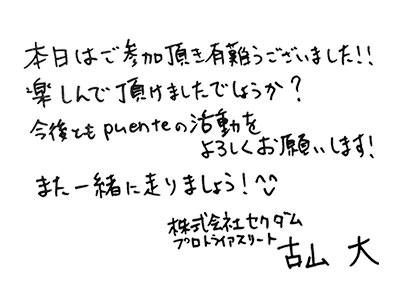 本日はご参加頂き有難うございました!!
楽しんで頂けましたでしょうか?
今後とも puenteの活動を
よろしくお願いします!
また一緒に走りましょう!^^
株式会社セクダム
プロトライアスリート
古山 大